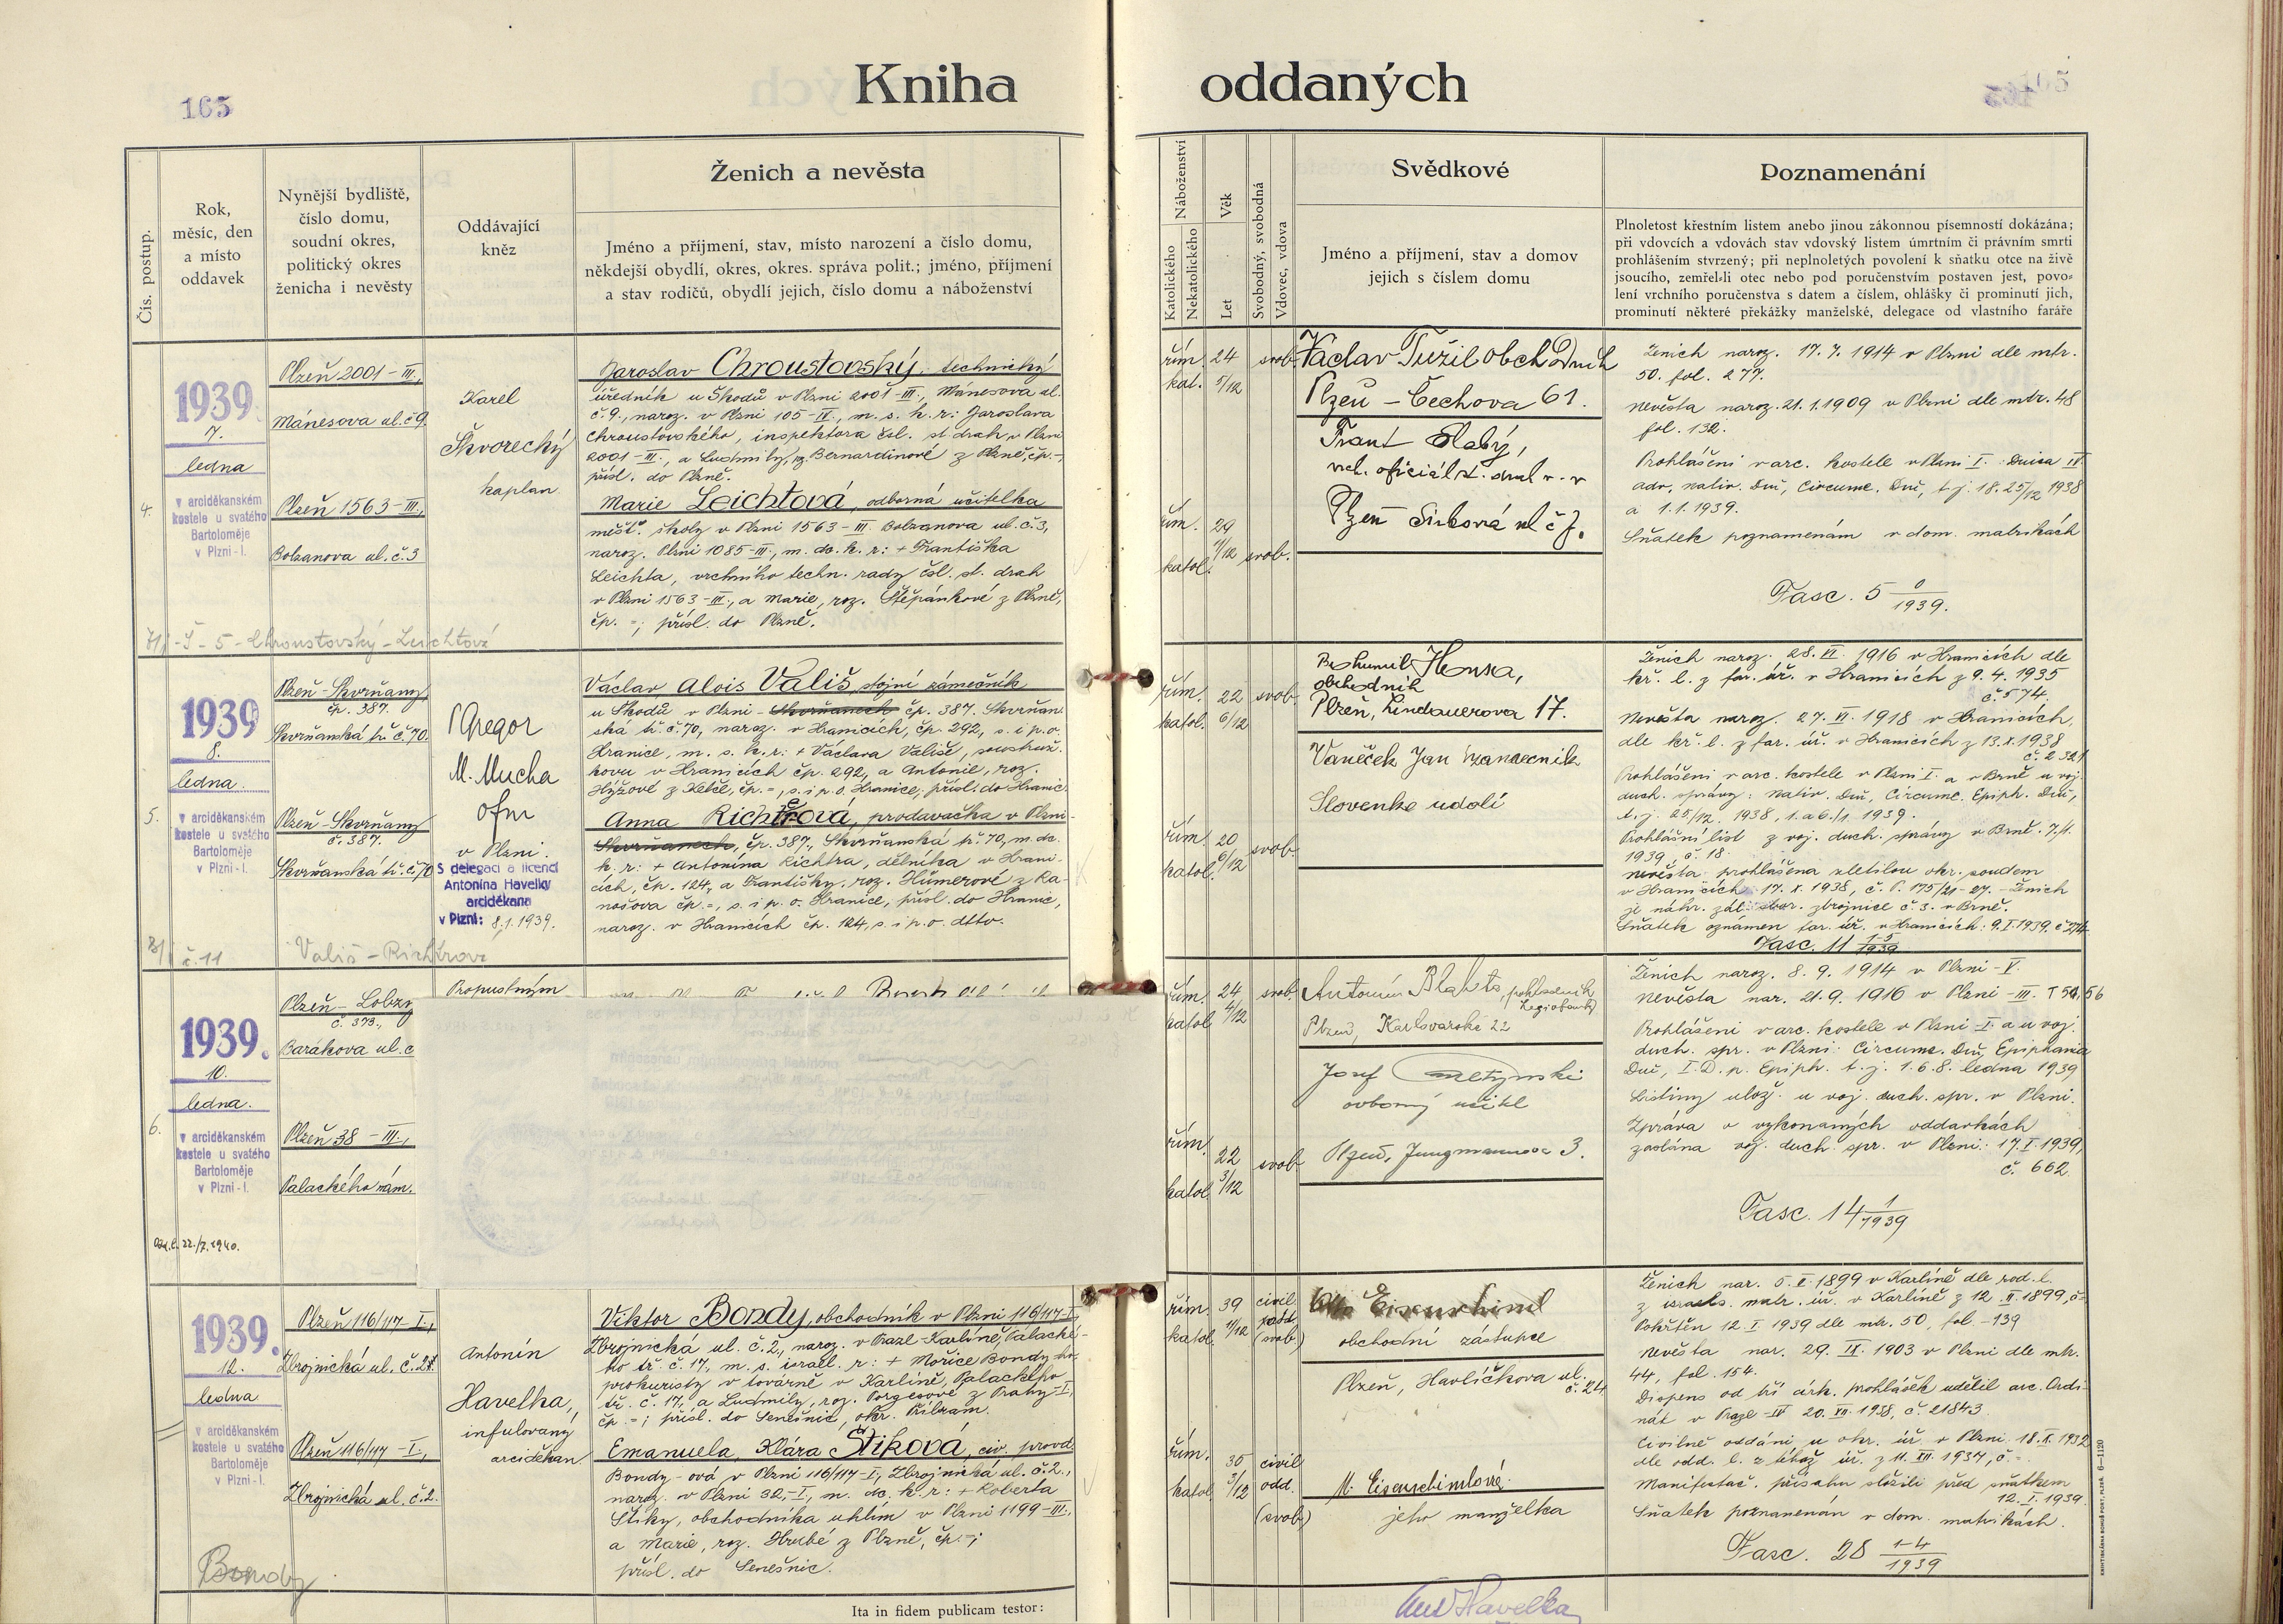 165
Kniha oddaných
Čís. postup.
Rok,
měsíc, den
a místo
oddavek
Nynější bydliště,
číslo domu,
soudní okres,
politický okres
ženicha i nevěsty
Oddávající
kněz
Ženich a nevěsta
Jméno a příjmení, stav, místo narození a číslo domu,
někdejší obydlí, okres, okres. správa polit.; jméno, příjmení
a stav rodičů, obydlí jejich, číslo domu a náboženství
Náboženství
Katolického
Nekatolického
Věk
Let
Svobodný, svobodná
Vdovec, vdova
Svědkové
Jméno a příjmení, stav a domov
jejich s číslem domu
Poznamenání
Plnoletost křestním listem anebo jinou zákonnou písemností dokázána;
při vdovcích a vdovách stav vdovský listem úmrtním či právním smrti
prohlášením stvrzený; při neplnoletých povolení k sňatku otce na živě
jsoucího, zemřel-li otec nebo pod poručenstvím postaven jest, povo-
lení vrchního poručenstva s datem a číslem, ohlášky či prominutí jich,
prominutí některé překážky manželské, delegace od vlastního faráře
4.
1939.
7.
ledna
v arciděkanském
kostele u svatého
Bartoloměje
v Plzni-I.
Plzeň 2001-III.,
Mánesova ul. č 9.
Plzeň 1563-III.,
Bolzanova ul. č. 3
Karel
Škvorecký
kaplan
Jaroslav Chroustovský, technický
úředník u Škodů v Plzni 2001-III., Mánesova ul.
č. 9., naroz. v Plzni 105-IX., m. s. k. r.: Jaroslava
Chroustovského, inspektora čsl. st. drah v Plzni
2001-III., a Ludmily, roz. Bernardinové z Plzně, čp.-,
přísl. do Plzně.
Marie Leichtová, odborná učitelka
měšť. školy v Plzni 1563-III Bolzanova ul. č. 3,
naroz. Plzni 1085-III., m. dc. k. r.: + Františka
Leichta, vrchního techn. rady čsl. st. drah
v Plzni 1563-III., a Marie, roz. Štěpánkové z Plzně,
čp. -; přísl. do Plzně.
řím. 24 svob.
kat. 5/12
řím. 29
katol. 11/12 svob.
Václav Tužil obchodník
Plzeň - Čechova 61.
Frant Slabý,
vrch. oficiál st. drah v. v
Plzeň
Ženich naroz. 17. 7. 1914 v Plzni dle mtr.
50. fol. 277.
Nevěsta naroz. 21. 1. 1909 v Plzni dle mtr. 48
fol. 132.
Prohlášeni v arc. kostele v Plzni I.: Dnica IV.
adv., Nativ. Dni, Circumc. Dni, t. j. 18. 25/12 1938
a 1. 1. 1939.
Sňatek poznamenán v dom. matrikách
Fasc. 5 0/1939.
5 - Chroustovský - Leichtová
5.
1939
8.
ledna.
v arciděkanském
kostele u svatého
Bartoloměje
v Plzni-I.
Plzeň-Skvrňany
čp. 387.
Skvrňanská tř. č. 70.
Plzeň-Skvrňany
č. 387.
Skvrňanská tř. č. 70
P Gregor
M. Mucha
ofm
v Plzni.
S delegací a licencí
Antonína Havelky
arciděkana
v Plzni: 8.1.1939.
Václav Alois Vališ, strojní zámečník
u Škodů v Plzni-Skvrňanech čp. 387. Skvrňan-
ská tř. č. 70, naroz. v Hranicích, čp. 292, s. i p. o.
Hranice, m. s. k. r.: + Václava Vališe, soustruž-
kovu v Hranicích čp. 292, a Antonie, roz.
Hýžové z Kelče, čp. -, s. i p. o. Hranice, přísl. do Hranic.
Anna Richtrová, prodavačka v Plzni-
Skvrňanech, čp. 387, Skvrňanská tř. 70, m. dc.
k. r.: + Antonína Richtra, dělníka v Hrani-
cích, čp. 124, a Františky, roz. Hümerové z Ra-
nošova čp. -, s. i p. o. Hranice, přísl. do Hranic,
naroz. v Hranicích čp. 124, s. i p. o. dtto.
řím. 22 svob.
katol. 6/12
řím. 20
katol. 6/12 svob.
Bohumil Honsa,
obchodník
Plzeň, Lindauerova 17.
Vaněček Jan
Slovenke udolí
Ženich naroz. 28. VI. 1916 v Hranicích dle
kř. l. z far. úř. v Hranicích z 9. 4. 1935
č. 574.
Nevěsta naroz. 27. VI. 1918 v Hranicích,
dle kř. l. z far. úř. v Hranicích z 13. X. 1938
č. 2321
Prohlášeni v arc. kostele v Plzni I. a v Brně u voj.
duch. správy: Nativ. Dni, Circumc. Epiph. Dni,
t. j. 25/12. 1938, 1. a 6./1 1939.
Prohlášní list z voj. duch. správy v Brně. 7./1.
1939, č. 18.
Nevěsta prohlášena zletilou okr. soudem
v Hranicích 17. X. 1938, č. P. 175/21-27. - Ženich
je náhr. zál. zbrojnice č. 3. v Brně.
Sňatek oznámen far. úř. v Hranicích: 9. I. 1939, č 274
Fasc. 11 1-5/1939
č. 11 Vališ - Richtrová
6.
1939.
10.
ledna.
v arciděkanském
kostele u svatého
Bartoloměje
v Plzni-I.
22./I. 1940.
Plzeň - Lobzy
č. 373.,
Barákova ul. č
Plzeň 38 - III.,
Palackého nám.
Propustným
řím. 24 svob.
katol. 4/12
řím. 22 svob.
katol. 3/12
Antonín Blahts, pokladník
Legiobanky
Plzeň, Karlovarská 22
Josef
odborný učitel
Plzeň, Jungmannova 3.
Ženich naroz. 8. 9. 1914 v Plzni-V.
Nevěsta nar. 21. 9. 1916 v Plzni-III. T 54, 56
Prohlášeni v arc. kostele v Plzni-I. a u voj.
duch. spr. v Plzni: Circumc. Dni, Epiphania
Dni, I. D. p. Epiph. t. j. 1. 6. 8. ledna 1939
Listiny ulož. u voj. duch. spr. v Plzni.
Zpráva o vykonaných oddavkách
zaslána voj. duch. spr. v Plzni: 17. I. 1939,
č. 662.
Fasc. 14 1/1939
1939.
12.
ledna
v arciděkanském
kostele u svatého
Bartoloměje
v Plzni-I.
Bondy
Plzeň 116/117-I.,
Zbrojnická ul. č. 2.
Plzeň 116/117-I.,
Zbrojnická ul. č. 2.
Antonín
Havelka,
infulovaný
arciděkan
Viktor Bondy, obchodník v Plzni 116/117-I.
Zbrojnická ul. č. 2., naroz. v Praze-Karlíně, Palacké-
ho tř. č. 17, m. s. israel. r.: + Mořice Bondy-ho
prokuristy v továrně v Karlíně, Palackého
tř. č. 17, a Ludmily, roz. Porgesové z Prahy-I.,
čp. -; přísl. do Senešnic, okr. Příbram.
Emanuela, Klára Štiková, civ. provd.
Bondy-ová v Plzni 116/117-I., Zbrojnická ul. č. 2.,
naroz. v Plzni 32,-I., m. dc. k. r.: + Roberta
Štiky, obchodníka uhlím v Plzni 1199-III.,
a Marie, roz. Hrubé z Plzně, čp. -;
přísl. do Senešnic.
řím. 39 civil.
katol. 11/12 odd. (svob.)
řím. 35 civil
katol. 3/12 odd.
(svob.)
Otto Eisenschiml
obchodní zástupce
Plzeň, Havlíčkova ul.
č. 24
M. Eisenschimlová
jeho manželka
Ženich nar. 5. II. 1899 v Karlíně dle rod. l.
z israels. matr. úř. v Karlíně z 12. II. 1899, č-
Pokřtěn 12. I 1939 dle mtr. 50, fol. -139
Nevěsta nar. 29. IX. 1903 v Plzni dle mtr.
44, fol. 154.
Dispens od tří círk. prohlášek udělil arc. Ordi-
nát v Praze-IV 20. XII. 1938, č. 21843
Civilně oddáni u okr. úř. v Plzni 18. X. 1932
dle odd. l. z téhož úř. z 11. XII. 1937, č.-.
Manifestač. přísahu složili před sňatkem
12. I. 1939.
Sňatek poznamenán v dom. matrikách.
Fasc. 28 1-4/1939
Ita in fidem publicam testor:
Ant Havelka